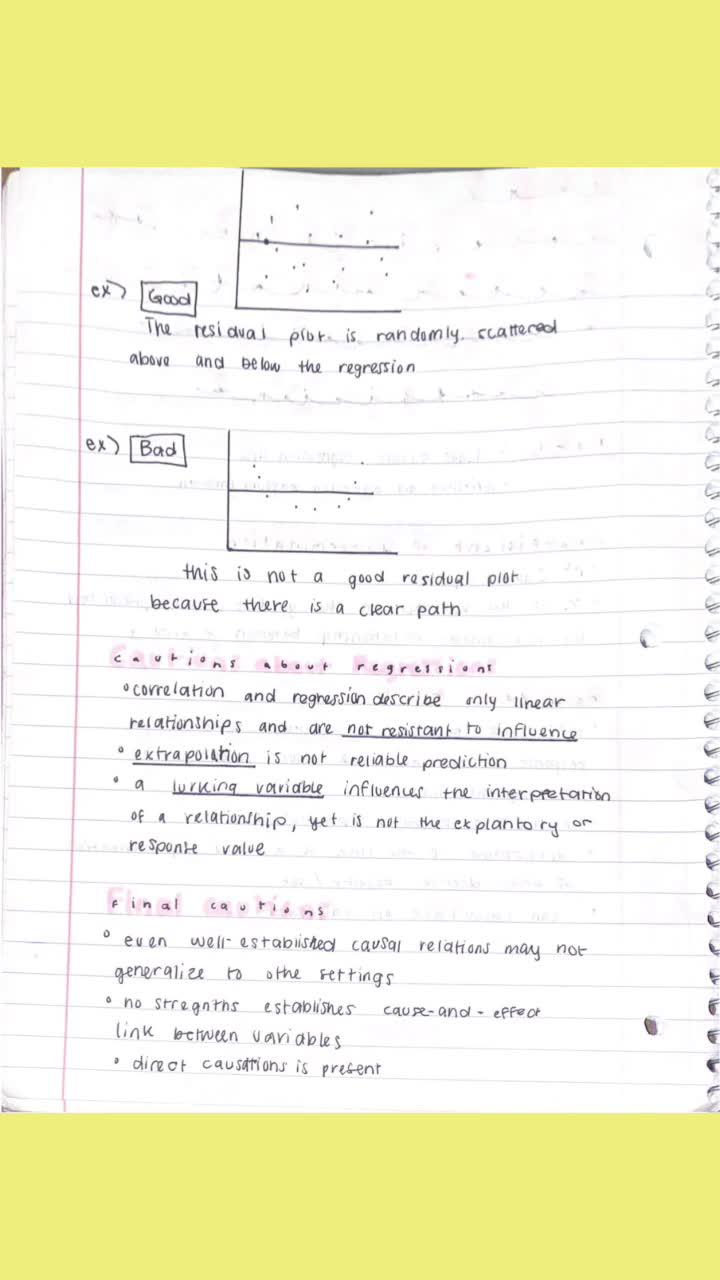 ex) Good
The residual plot is randomly scattered
above and below the regression
ex) Bad
this is not a good residual plot
because there is a clear path
Cautions about Regressions
• correlation and regression describe only linear
relationships and are not resistant to influence
• extrapolation is not reliable prediction
• a lurking variable influences the interpretation
of a relationship, yet is not the explantory or
response value
Final cautions
• even well-established causal relations may not
generalize to othe settings
• no stregnths establishes cause-and-effect
link between variables
• direct causations is present